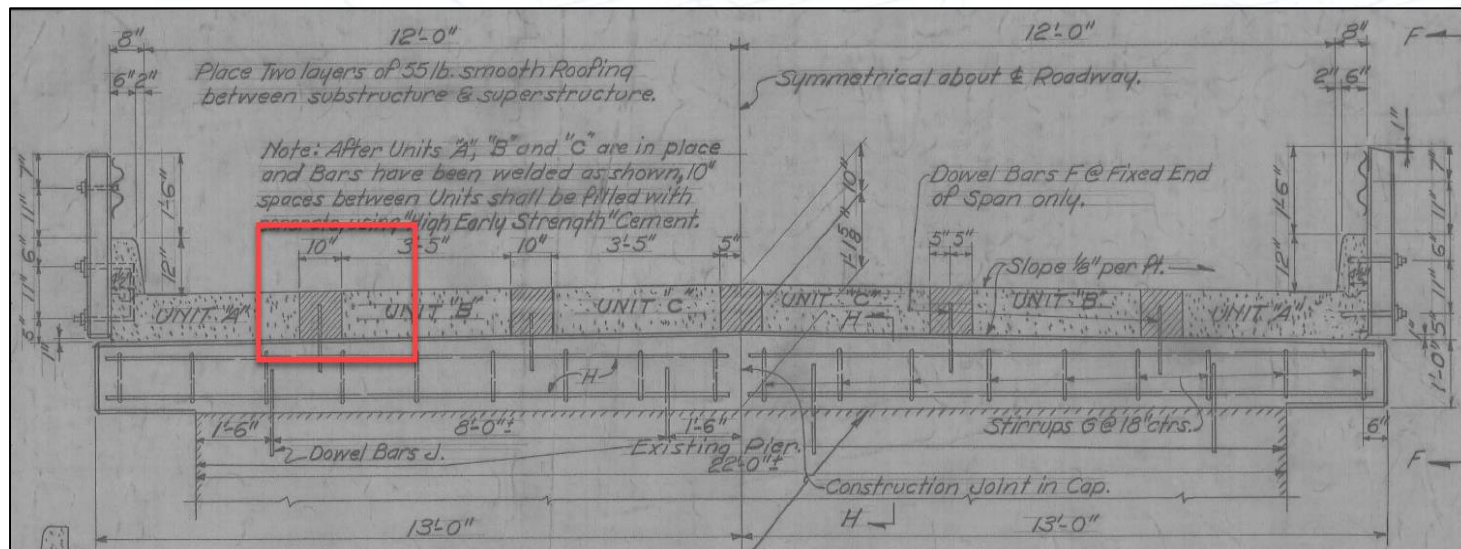 8"
12'-0"
12'-0"
8"
F
6" 2"
2" 6"
Place Two layers of 55 lb. smooth Roofing
between substructure & superstructure.
Symmetrical about ℄ Roadway.
1"
Note: After Units "A", "B" and "C" are in place
and Bars have been welded as shown, 10"
spaces between Units shall be filled with
concrete, using "High Early Strength" Cement.
7"
11"
6"
11"
5"
1"
1'-6"
12"
10"
Dowel Bars F @ Fixed End
of Span only.
7"
1'-6"
11"
6"
12"
11"
10"
3'-5"
10"
3'-5"
5"
5" 5"
Slope 1/8" per ft.
UNIT "A"
UNIT "B"
UNIT "C"
UNIT "C"
UNIT "B"
UNIT "A"
H
H
5"
1'-0"
1'-6"
8'-0"±
1'-6"
Stirrups G @ 18" ctrs.
6"
Dowel Bars J.
Existing Pier.
22'-0"±
F
Construction Joint in Cap.
13'-0"
H
13'-0"